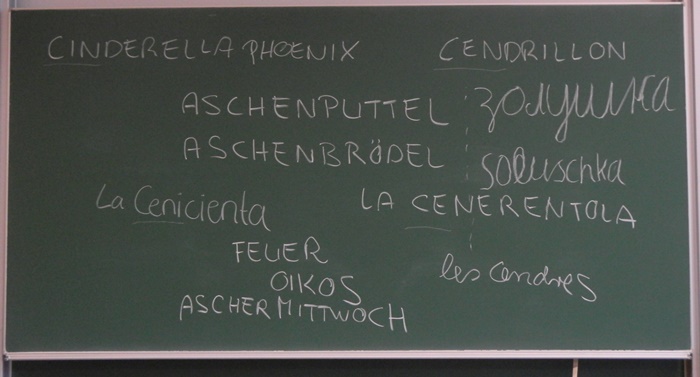 CINDERELLA PHOENIX CENDRILLON
ASCHENPUTTEL золушка
ASCHENBRÖDEL soluschka
La Cenicienta LA CENERENTOLA
FEUER
OIKOS les cendres
ASCHERMITTWOCH